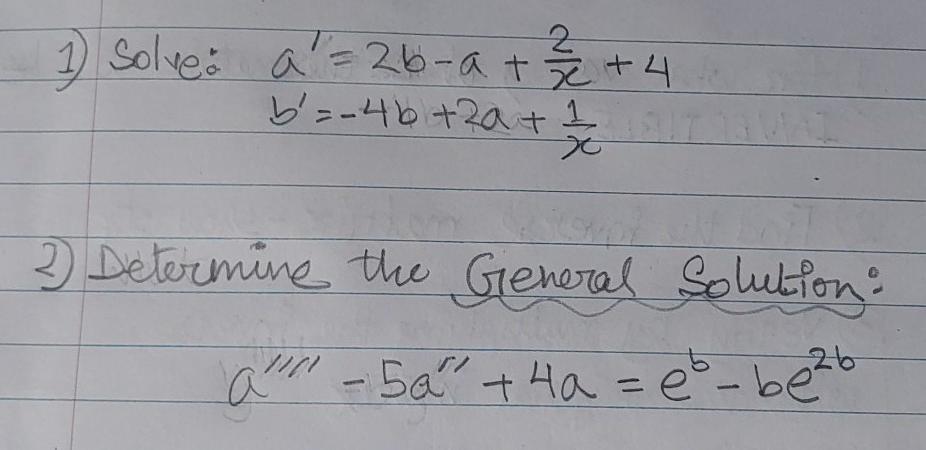 1) Solve: a' = 2b - a + 2/x + 4
b' = -4b + 2a + 1/x
2) Determine the General Solution:
a'''' - 5a'' + 4a = e^b - be^2b